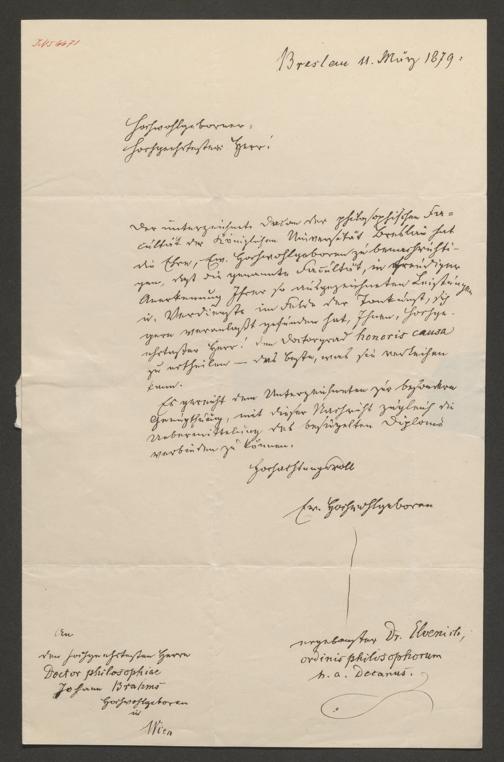 Breslau 11. März 1879.
Hochwohlgeborner,
Hochgeehrtester Herr!
Der unterzeichnete Decan der philosophischen Fa-
cultät der Königlichen Universität Breslau hat
die Ehre, Ew. Hochwohlgeboren zu benachrichti-
gen, daß die genannte Facultät, in freudiger
Anerkennung Ihrer so ausgezeichneten Leistungen
u. Verdienste im Felde der Tonkunst, sich
gern veranlaßt gefunden hat, Ihnen, Hochge-
ehrtester Herr! den Doctorgrad honoris causa
zu ertheilen — das Beste, was sie verleihen
kann.
Es gereicht dem Unterzeichneten zur besondern
Genugthuung, mit dieser Nachricht zugleich die
Uebermittelung des besiegelten Diploms
verbinden zu können.
Hochachtungsvoll
Ew. Hochwohlgeboren
ergebenster Dr. Elvenich,
ordinis philosophorum
h. a. Decanus.
An
den hochgeehrtesten Herrn
Doctor philosophiae
Johann Brahms
Hochwohlgeboren
in
Wien